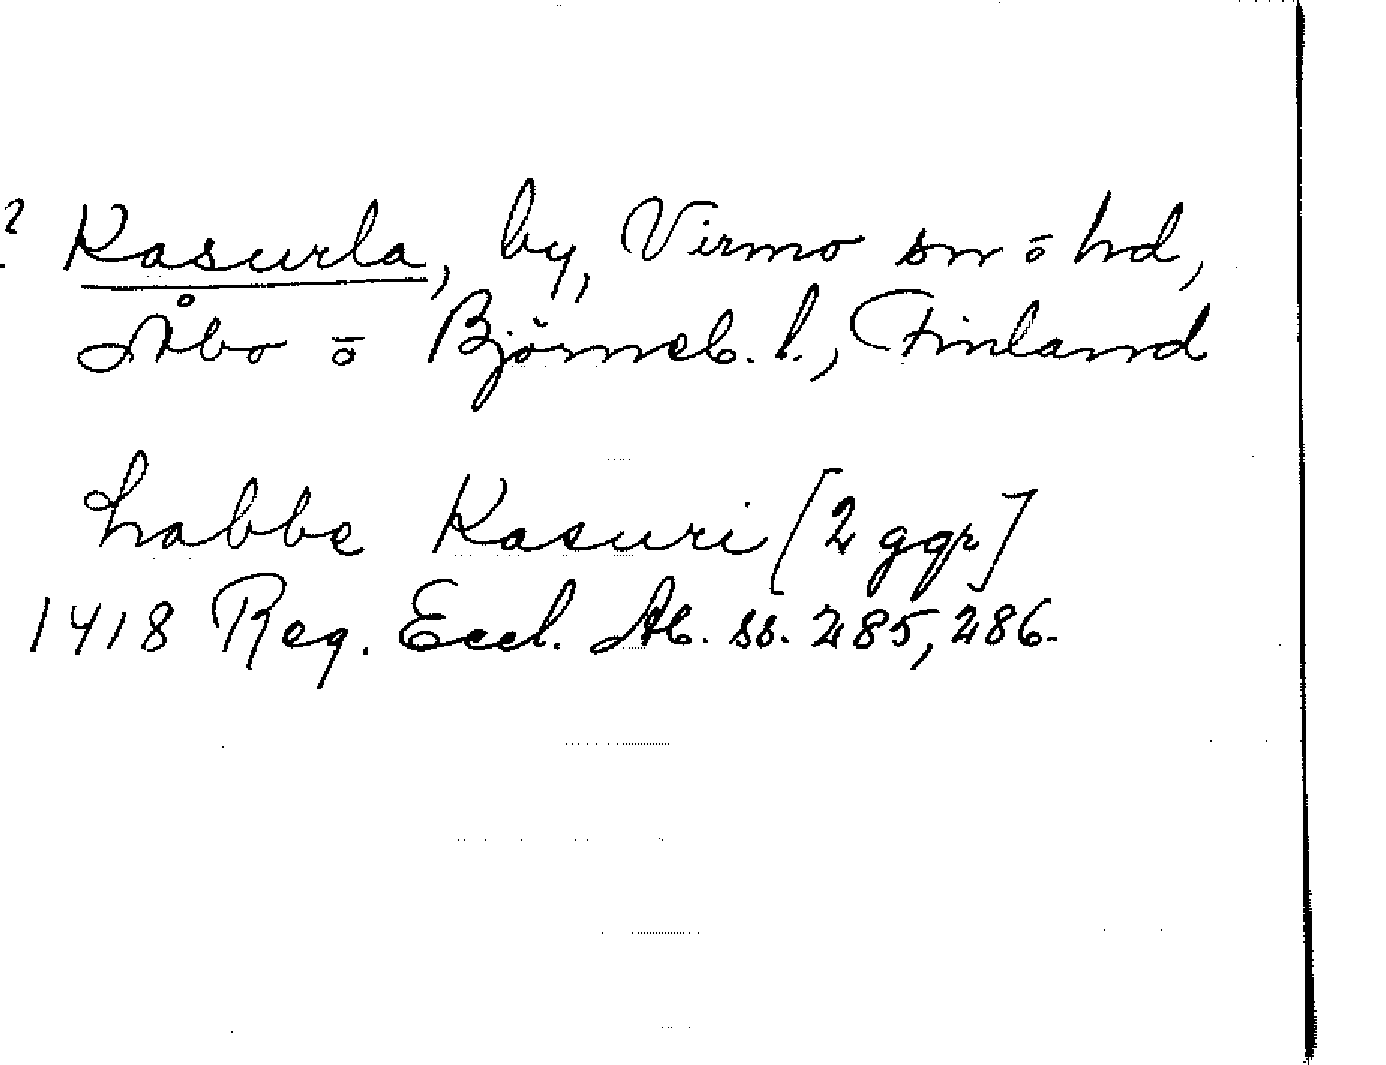 ? Kasurla, by, Virmo sn ō hd,
Åbo ō Björneb. l., Finland
Labbe Kasuri [2 ggr]
1418 Reg. Eccl. Ab. ss. 285, 286.